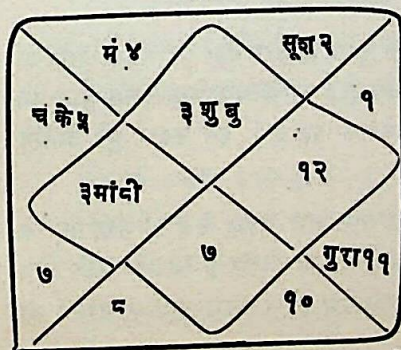 मं ४
सूश २
चं के ५
३ शु बु
१
३मांदी
१२
७
७
गुरा ११
८
१०